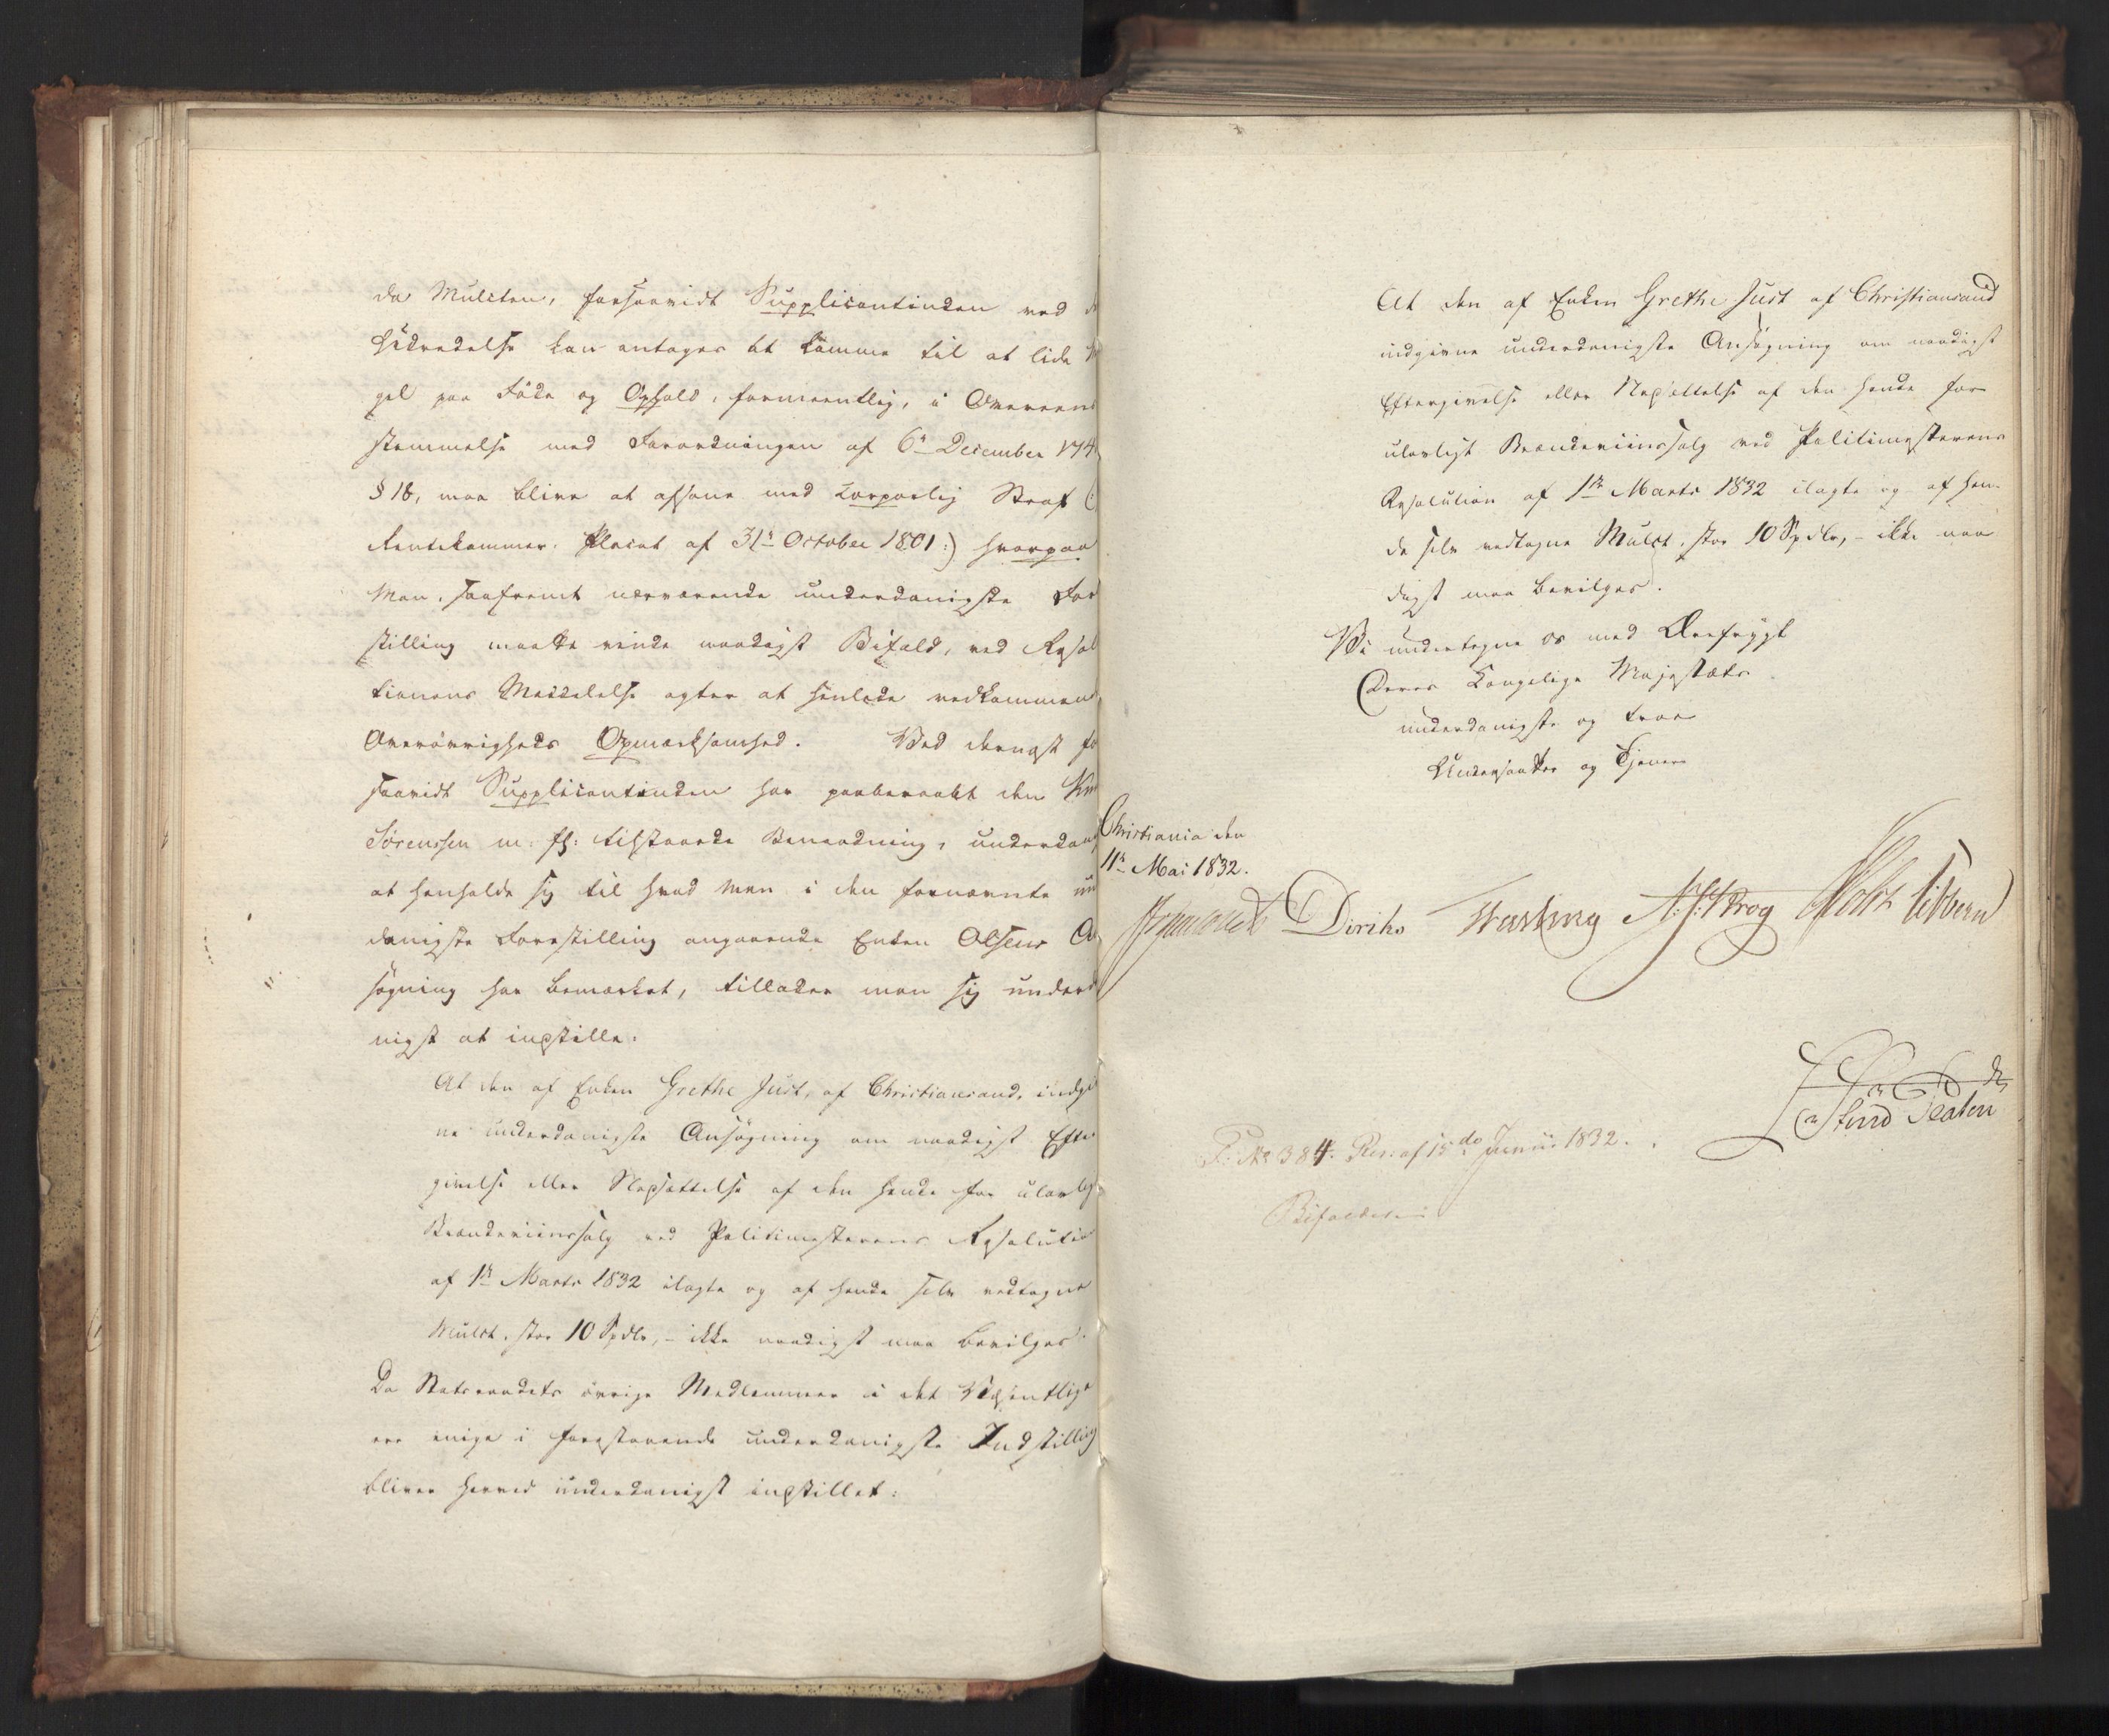 da Mulcten, forsaavidt Supplicantinden ved d
Udredelse kan antages at komme til at lide M
gel paa Føde og Ophold, formeentlig, i Overeens
stemmelse med Forordningen af 6te December 174
§ 18, maa blive at afsone med Corporlig Straf (:
Rentekammer-Placat af 31te October 1801:) hvorpaa
Man, saafremt nærværende underdanigste For
stilling maatte vinde naadigst Bifald, ved Resol
tionens Meddelelse agter at henlede vedkommend
Overøvrigheds Opmærksomhed. Ved dernæst fo
saavidt Supplicantinden har paaberaabt den
Sørenssen m: fl: tilstaaede Benaadning, underdan
at henholde sig til hvad man i den fornævnte un
danigste Forestilling angaaende Enken Olsens An
søgning har bemærket, tillader man sig underd
nigst at indstille:
At den af Enken Grethe Just, af Christiansand, indgi
ne underdanigste Ansøgning om naadigst Efter
givelse eller Nedsættelse af den hende for ulovlig
Brændeviinssalg ved Politimesterens Resolution
af 1te Marts 1832 ilagte og af hende selv vedtagne
Mulct, stor 10 Spdlr, - ikke naadigst maa bevilges.
Da Statsraadets øvrige Medlemmer i det Væsentlige
ere enige i foranstaaende underdanigste Indstilling
bliver herved underdanigst indstillet:
At den af Enken Grethe Just af Christiansand
indgivne underdanigste Ansøgning om naadigst
Eftergivelse eller Nedsættelse af den hende for
ulovligt Brændeviinssalg ved Politimesterens
Resolution af 1te Marts 1832 ilagte og af hen-
de selv vedtagne Mulct, stor 10 Spdlr, - ikke naa
digst maa bevilges.
Vi undertegne os med Ærefrygt
Deres Kongelige Majestæts
underdanigste og troe
Undersaatter og Tjenere
Christiania den
11te Mai 1832.
Diriks Fasting Krog Holst Vibe
P: No 384. Res: af 15de Junii 1832.
Bifaldes: